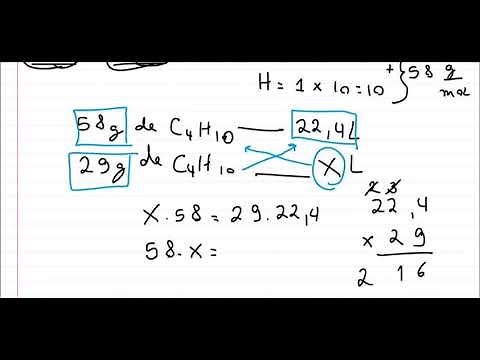 H = 1 x 10 = 10 + } 58 g/mol
58g de C₄H₁₀ — 22,4L
29g de C₄H₁₀ — X L
X . 58 = 29 . 22,4
58 . X =
22,4
x 29
2 16